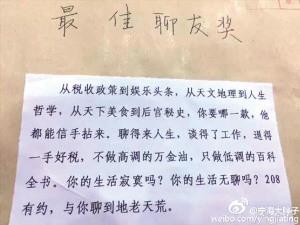 最佳聊友奖
从税收政策到娱乐头条，从天文地理到人生
哲学，从天下美食到后宫秘史，你要哪一款，他
都能信手拈来。聊得来人生，谈得了工作，逗得
一手好税，不做高调的万金油，只做低调的百科
全书。你的生活寂寞吗？你的生活无聊吗？208
有约，与你聊到地老天荒。
@宁海大胖子
weibo.com/yingjiating